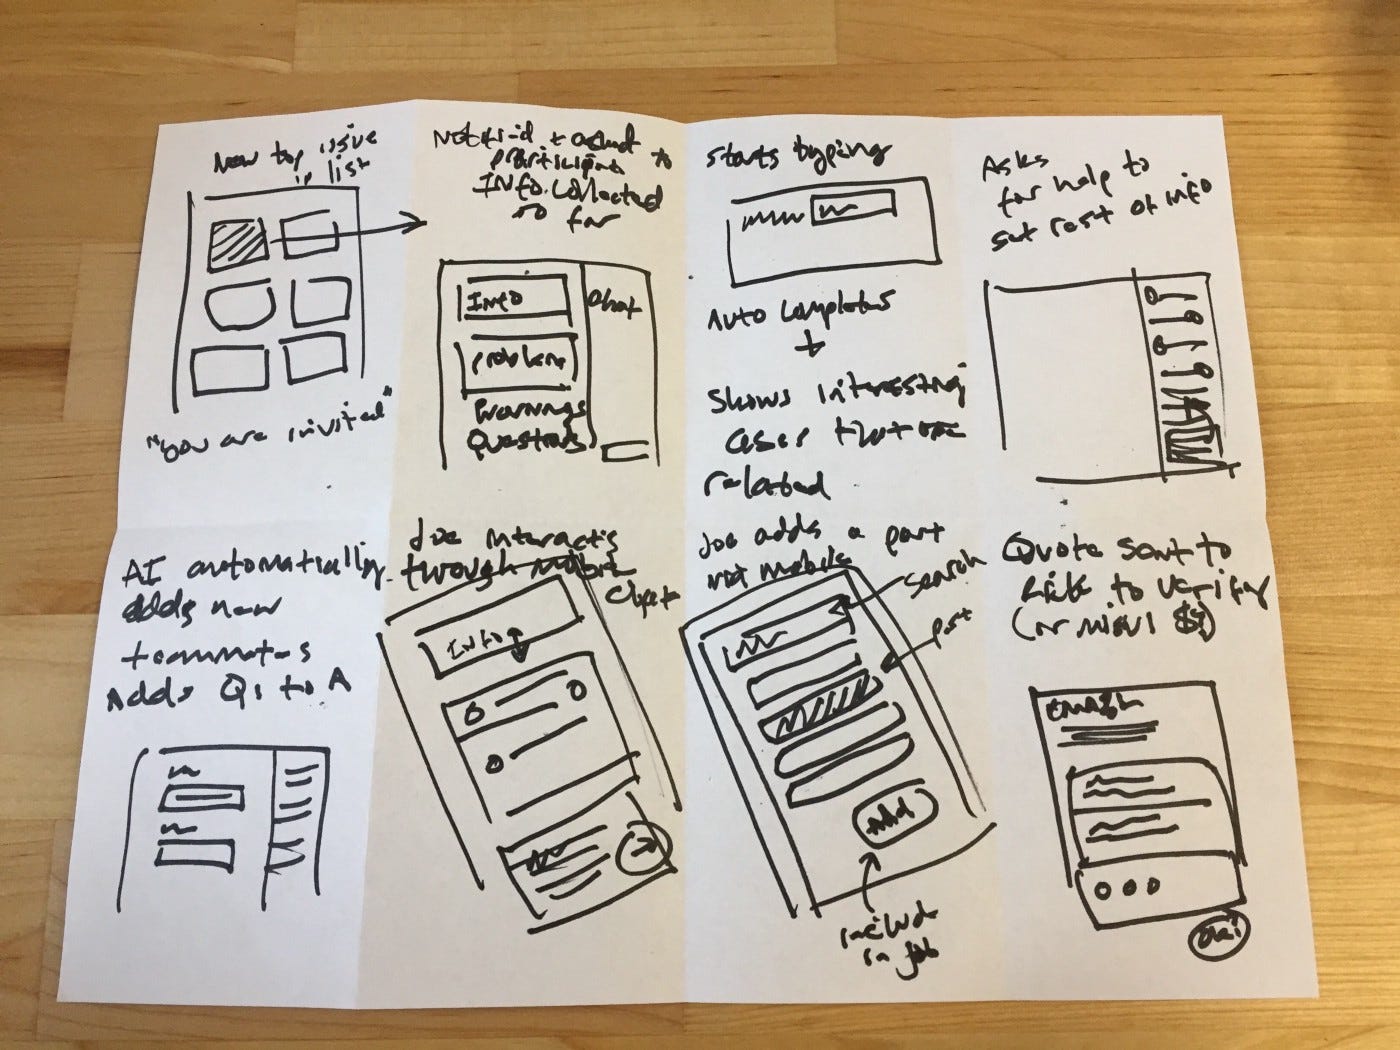 New top issue
in list
"you are invited"
+ asked to
participate
Info collected
so far
Info
Chat
Problem
Warnings
Questions
Starts typing
Auto completes
+
Shows interesting
cases that are
related
Asks
for help to
get rest of info
AI automatically
adds new
teammates
Adds Qs to A
Joe interacts
through mobile
Chat
Info
Joe adds a part
via mobile
search
part
Add
include
in job
Quote sent to
to verify
email